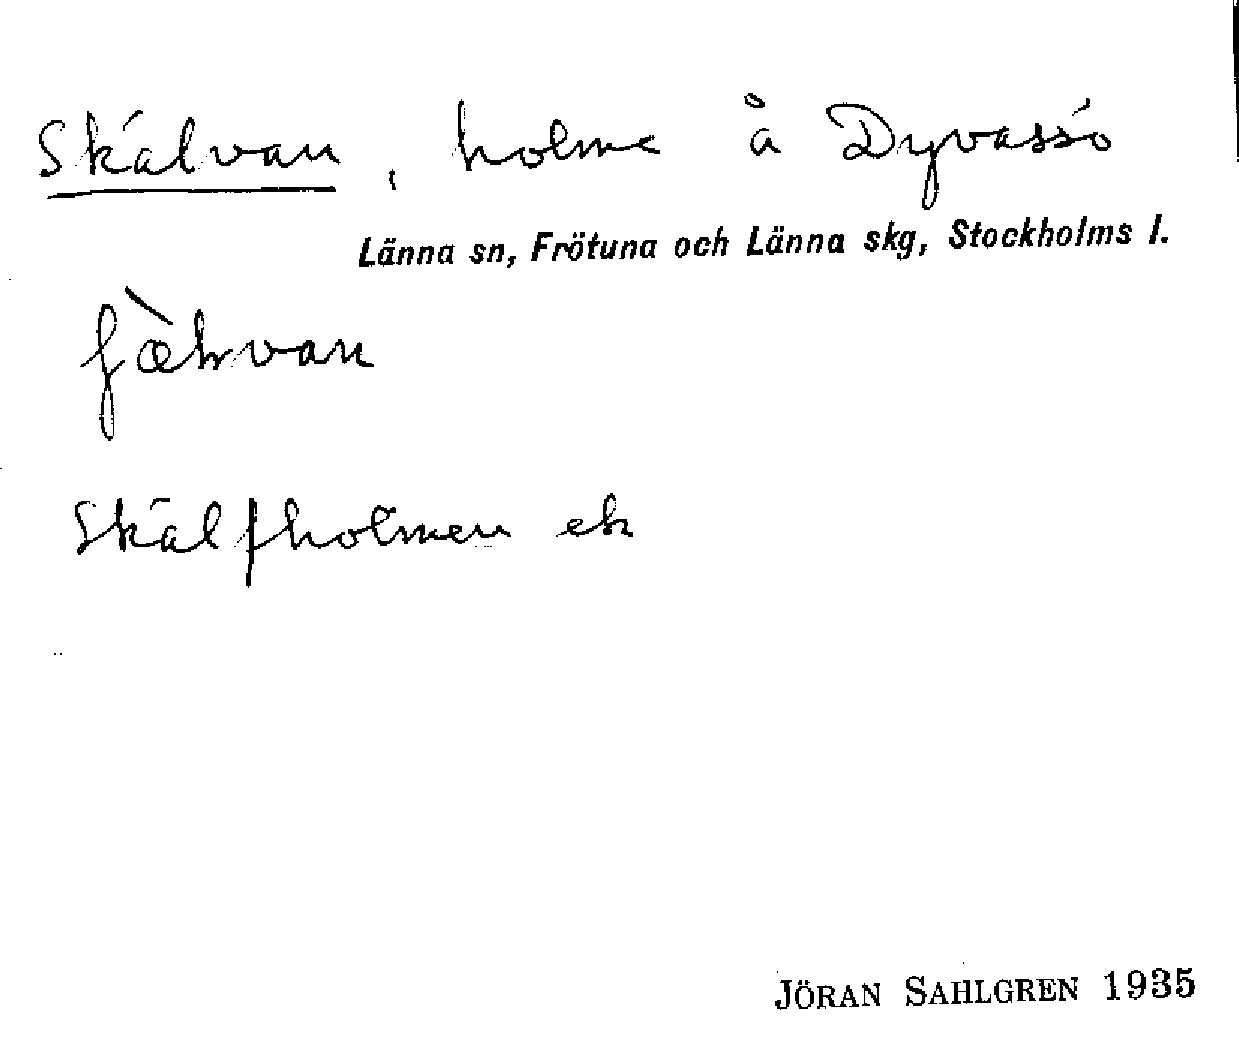 Skälvan, holme å Dyvassö
Länna sn, Frötuna och Länna skg, Stockholms l.
Skälfholmen ek
JÖRAN SAHLGREN 1935